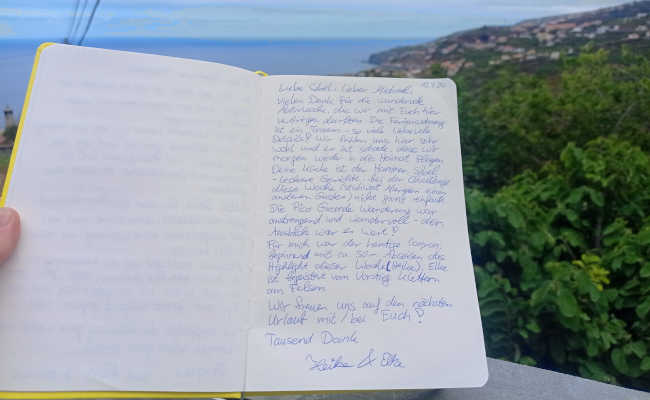 Liebe Sibel, Lieber Michael,
Vielen Dank für die wundervolle
Aktivwoche, die wir mit Euch hier
verbringen durften. Die Ferienwohnung
ist ein Traum - so viele liebevolle
Details! Wir fühlen uns hier sehr
wohl und es ist schade, dass wir
morgen wieder in die Heimat fliegen.
Deine Küche ist der Hammer Sibel
- leckere Gerichte - bei der Challenge
diese Woche
anderen Gästen) nicht ganz einfach.
Die Pico Grande Wanderung war
anstrengend und wundervoll - dein
Ausblick war es wert!
Für mich war der heutige Canyon,
beginnend mit 50m Abseilen das
Highlight dieser Woche (Heike), Elke
ist begeistert vom Vorstieg Klettern
am Felsen.
Wir freuen uns auf den nächsten
Urlaub mit/bei Euch!
Tausend Dank
Heike & Elke